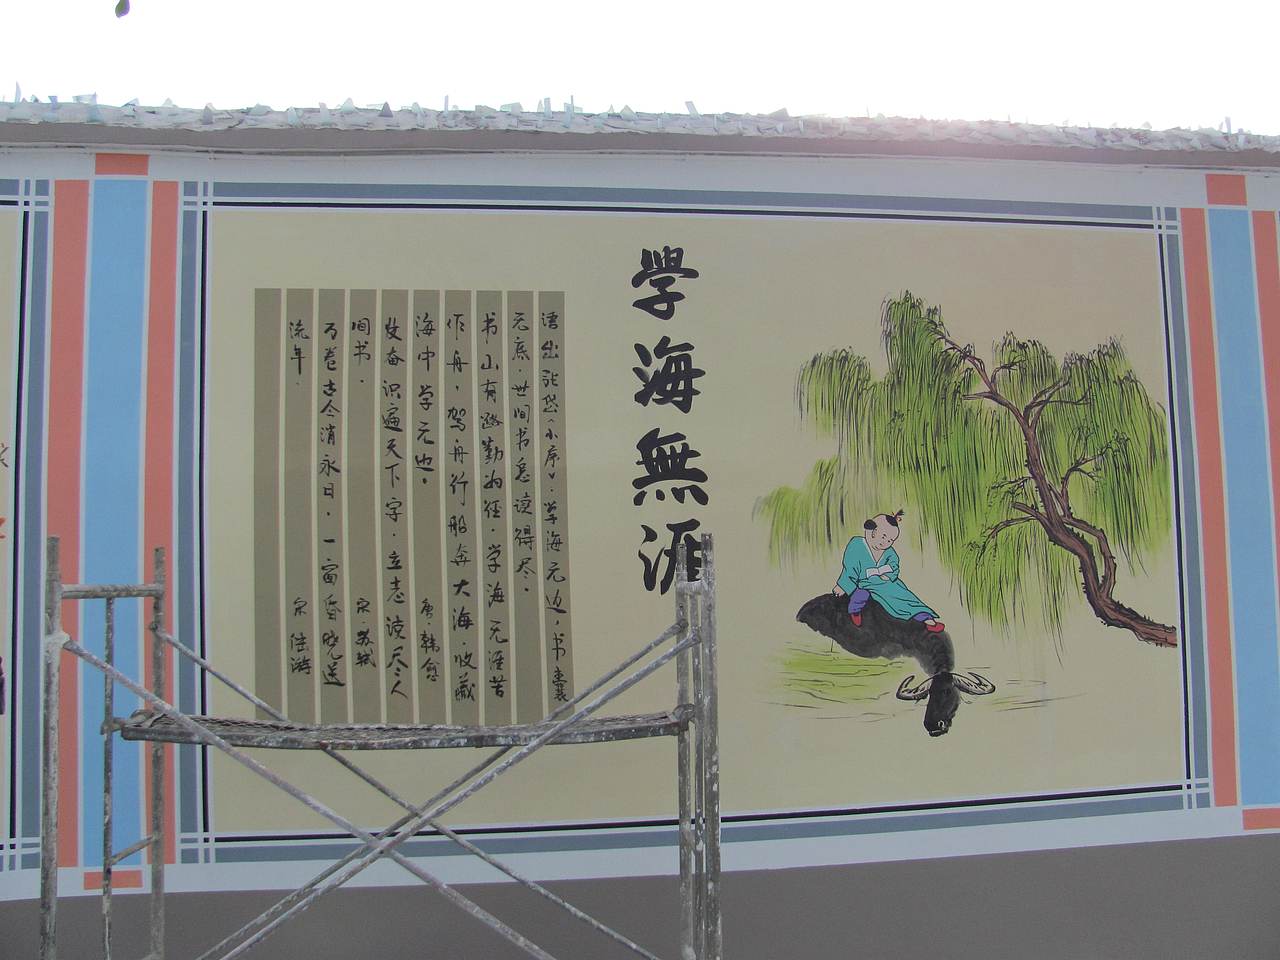 學海無涯
语出张岱《小序》.学海无边，书囊
无底.世间书怎读得尽.
书山有路勤为径.学海无涯苦
作舟，驾舟行船奔大海.收藏
海中学无边。 唐.韩愈
发奋识遍天下字.立志读尽人
间书. 宋.苏轼
万卷古今消永日，一窗昏晓送
流年. 宋 陆游